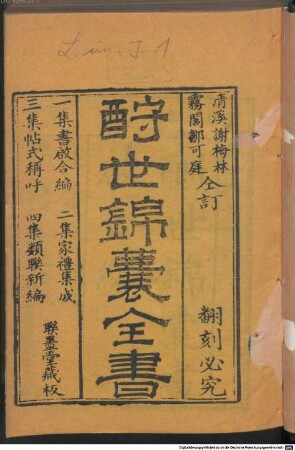 清溪謝梅林
霧閣鄒可庭
仝訂
翻刻必究
酬世錦囊全書
一集書啟合編 二集家禮集成
三集帖式稱呼 四集類聯新編
聯墨堂藏板